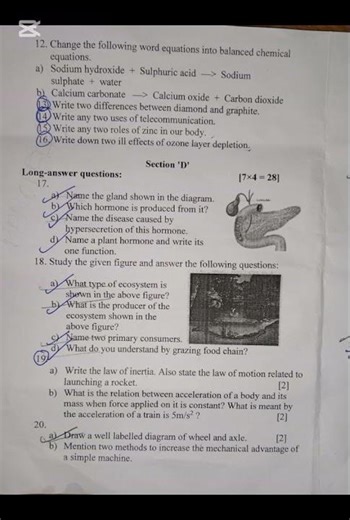 12. Change the following word equations into balanced chemical
equations.
a) Sodium hydroxide + Sulphuric acid ---> Sodium
sulphate + water
b) Calcium carbonate ---> Calcium oxide + Carbon dioxide
13. Write two differences between diamond and graphite.
14. Write any two uses of telecommunication.
15. Write any two roles of zinc in our body.
16. Write down two ill effects of ozone layer depletion.
Section 'D'
Long-answer questions: [7×4 = 28]
17.
a) Name the gland shown in the diagram.
b) Which hormone is produced from it?
c) Name the disease caused by
hypersecretion of this hormone.
d) Name a plant hormone and write its
one function.
18. Study the given figure and answer the following questions:
a) What type of ecosystem is
shown in the above figure?
b) What is the producer of the
ecosystem shown in the
above figure?
c) Name two primary consumers.
d) What do you understand by grazing food chain?
19.
a) Write the law of inertia. Also state the law of motion related to
launching a rocket. [2]
b) What is the relation between acceleration of a body and its
mass when force applied on it is constant? What is meant by
the acceleration of a train is 5m/s² ? [2]
20.
a) Draw a well labelled diagram of wheel and axle. [2]
b) Mention two methods to increase the mechanical advantage of
a simple machine.